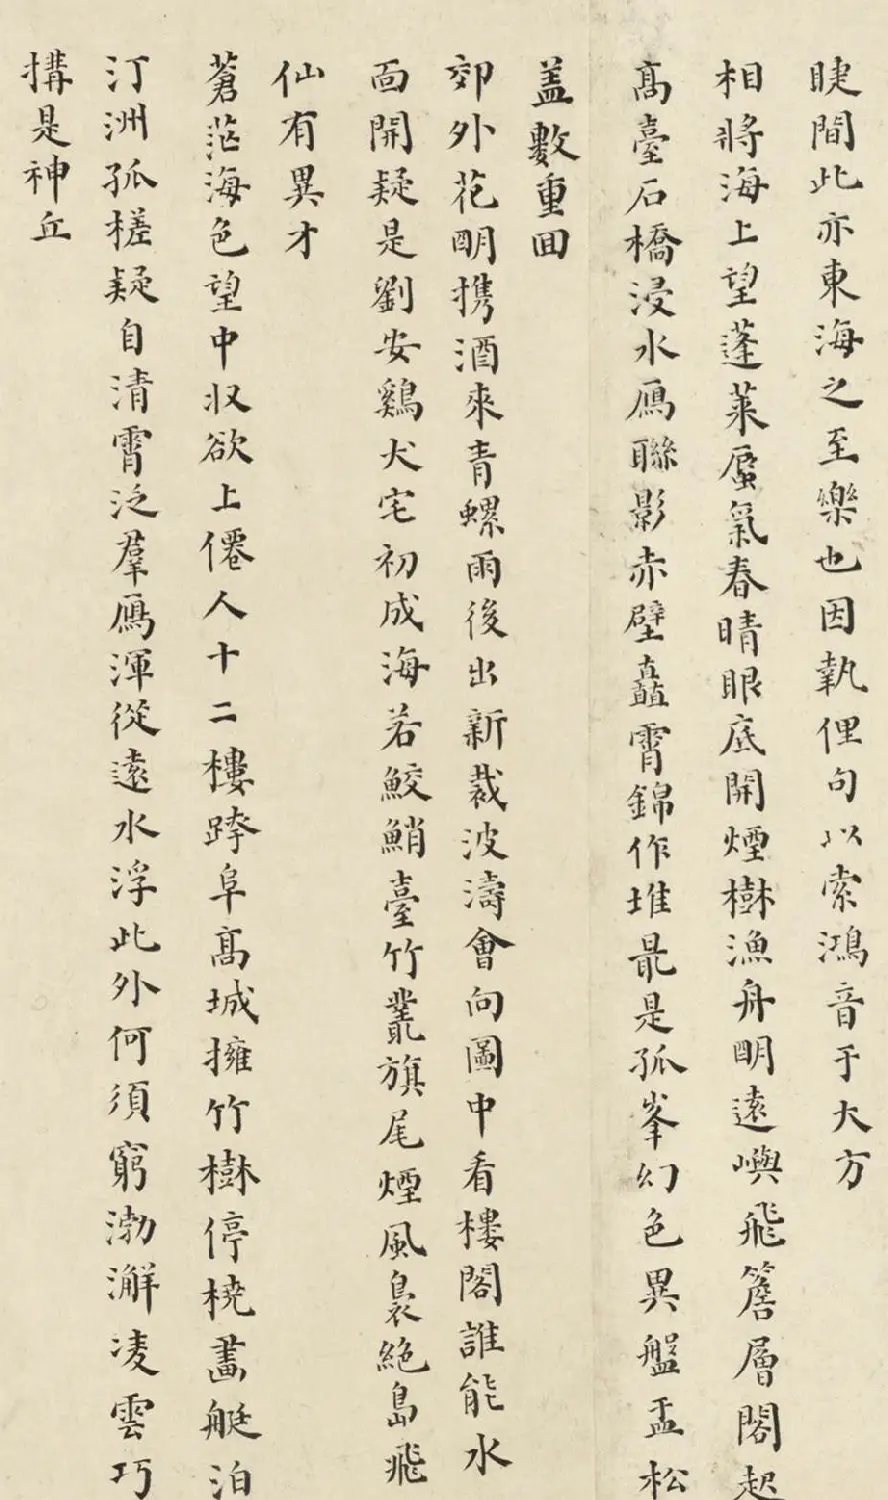 睫間此亦東海之至樂也因執俚句以索鴻音于大方
相將海上望蓬萊蜃氣春晴眼底開煙樹漁舟明遠嶼飛簷層閣起
高臺石橋浸水鴈聯影赤壁矗霄錦作堆最是孤峯幻色異盤盂松
盖數重回
郊外花明携酒來青螺雨後出新裁波濤會向圖中看樓閣誰能水
面開疑是劉安鷄犬宅初成海若鮫鮹臺竹叢旗尾煙風裊絕島飛
仙有異才
蒼茫海色望中收欲上僊人十二樓跨阜高城擁竹樹停橈畵艇泊
汀洲孤槎疑自清霄泛羣鴈渾從遠水浮此外何須窮渤澥凌雲巧
搆是神丘